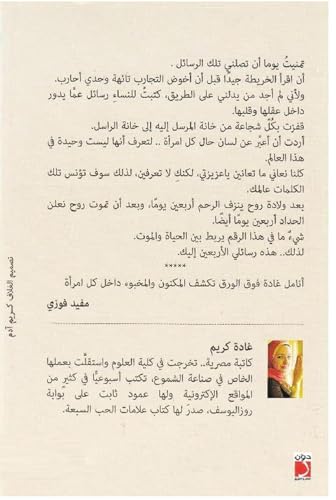 تمنيتُ يوما أن تصلني تلك الرسائل .
أن اقرأ الخريطة جيدًا قبل أن أخوض التجارب تائهة وحدي أحارب.
ولأني لم أجد من يدلني على الطريق، كتبتُ للنساءِ رسائل عمَّا يدور
داخل عقلها وقلبها.
قفزت بكُلِّ شجاعة من خانة المرسل إليه إلى خانة الراسل.
أردت أن أعبِّر عن لسان حال كل امرأة .. لتعرف أنها ليست وحيدة في
هذا العالم.
كلنا نعاني ما تعانين ياعزيزتي، لكنكِ لا تعرفين، لذلك سوف تؤنس تلك
الكلمات عالمك.
بعد ولادة روح ينزف الرحم أربعين يومًا، وبعد أن تموت روح نعلن
الحداد أربعين يومًا أيضًا.
شيءٌ ما في هذا الرقم يربط بين الحياة والموت.
لذلك.. هذه رسائلي الأربعين إليك.
*****
أنامل غادة فوق الورق تكشف المكنون والمخبوء داخل كل امرأة
مفيد فوزي
غادة كريم
كاتبة مصرية.. تخرجت في كلية العلوم واستقلَّت بعملها
الخاص في صناعة الشموع، تكتب أسبوعيًّا في كثيرٍ من
المواقع الإلكترونية ولها عمود ثابت على بوابة
روزاليوسف، صدرَ لها كتاب علامات الحب السبعة.
تصميم الغلاف كريم آدم
دوّن